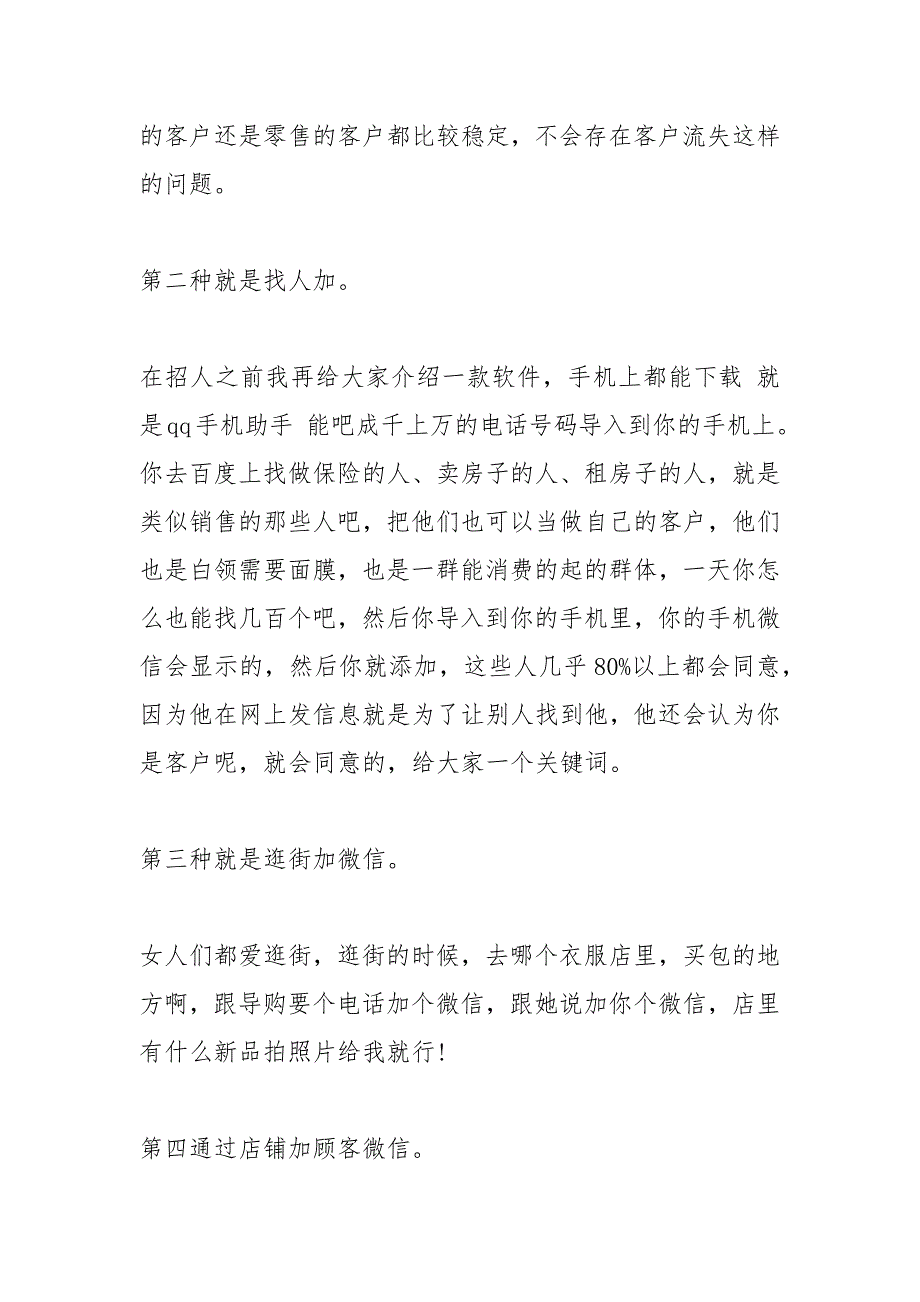 的客户还是零售的客户都比较稳定，不会存在客户流失这样
的问题。
第二种就是找人加。
在招人之前我再给大家介绍一款软件，手机上都能下载 就
是qq手机助手 能吧成千上万的电话号码导入到你的手机上。
你去百度上找做保险的人、卖房子的人、租房子的人，就是
类似销售的那些人吧，把他们也可以当做自己的客户，他们
也是白领需要面膜，也是一群能消费的起的群体，一天你怎
么也能找几百个吧，然后你导入到你的手机里，你的手机微
信会显示的，然后你就添加，这些人几乎80%以上都会同意，
因为他在网上发信息就是为了让别人找到他，他还会认为你
是客户呢，就会同意的，给大家一个关键词。
第三种就是逛街加微信。
女人们都爱逛街，逛街的时候，去哪个衣服店里，买包的地
方啊，跟导购要个电话加个微信，跟她说加你个微信，店里
有什么新品拍照片给我就行!
第四通过店铺加顾客微信。